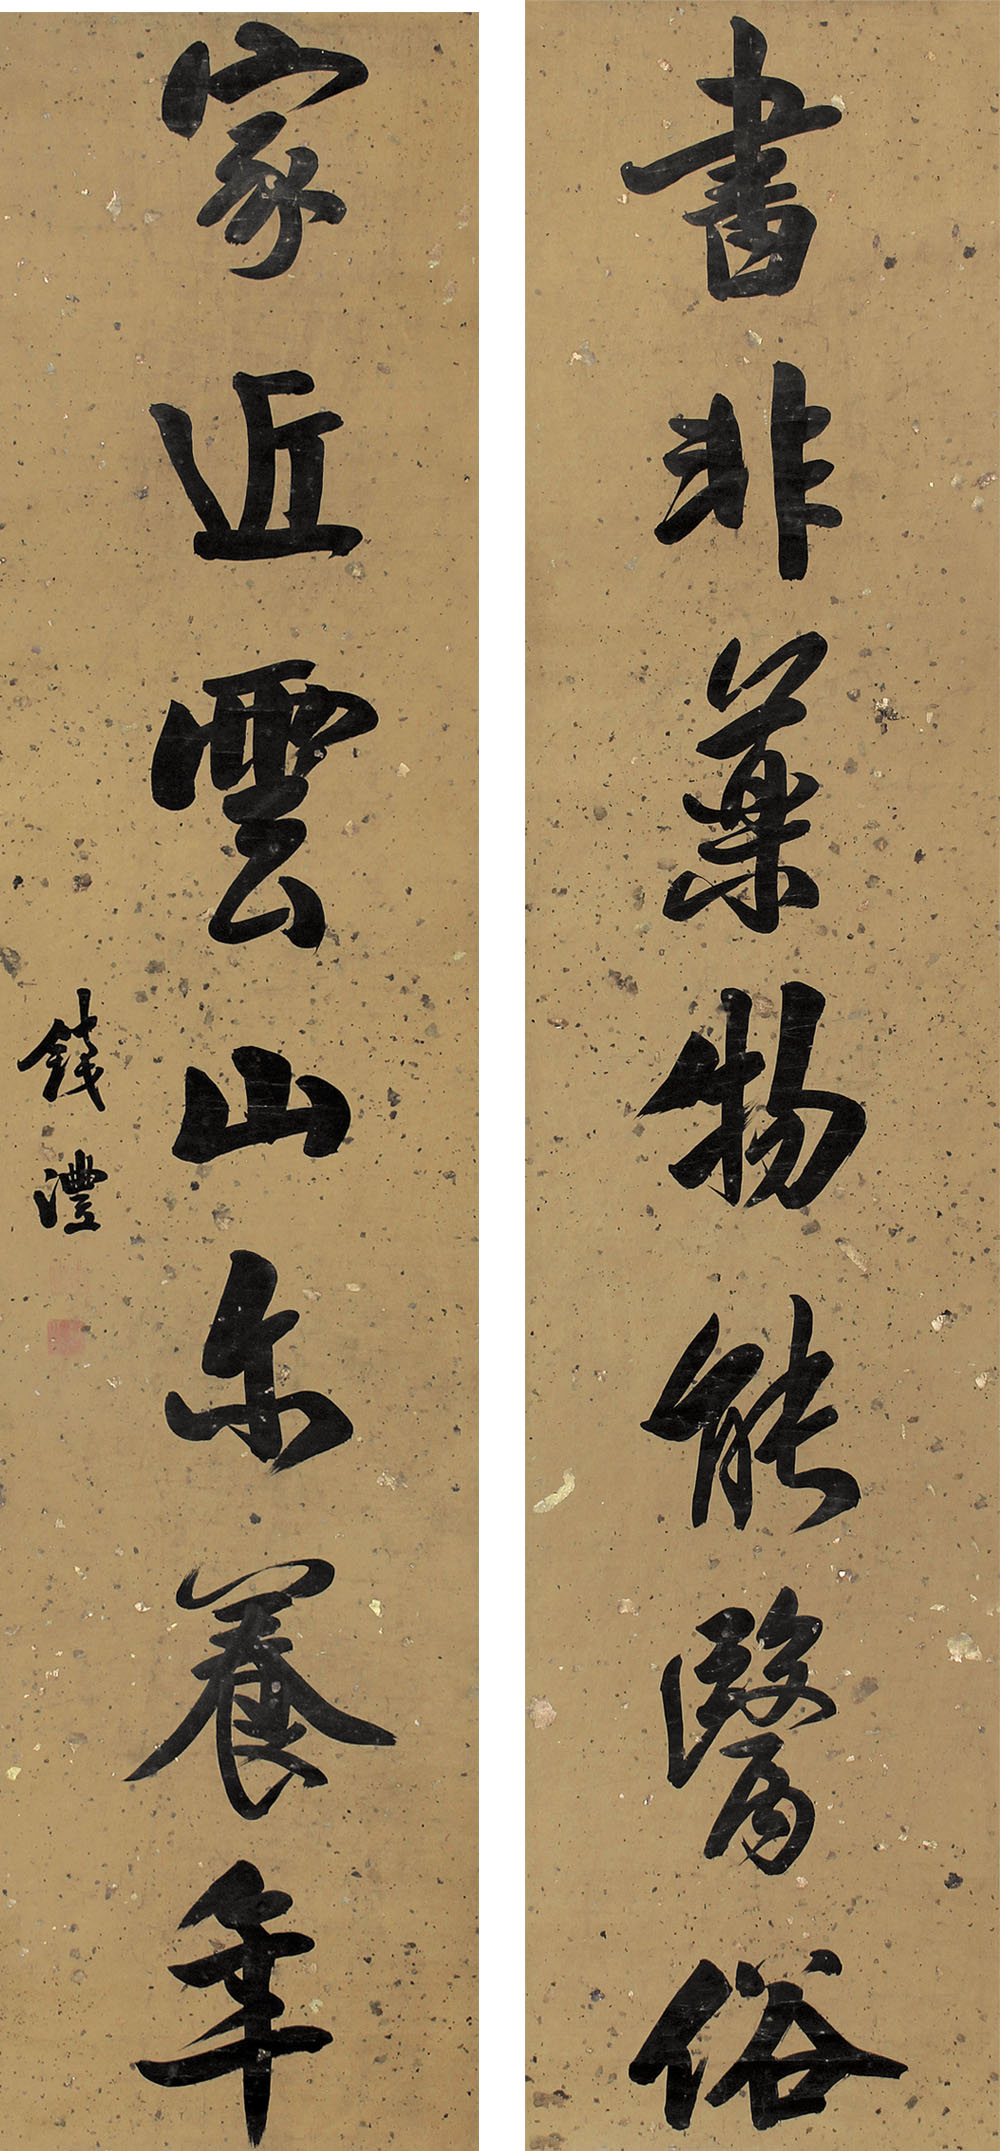 書非藥物能醫俗
家近雲山樂養年
錢灃